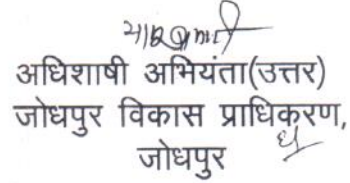 अधिशाषी अभियंता(उत्तर)
जोधपुर विकास प्राधिकरण,
जोधपुर